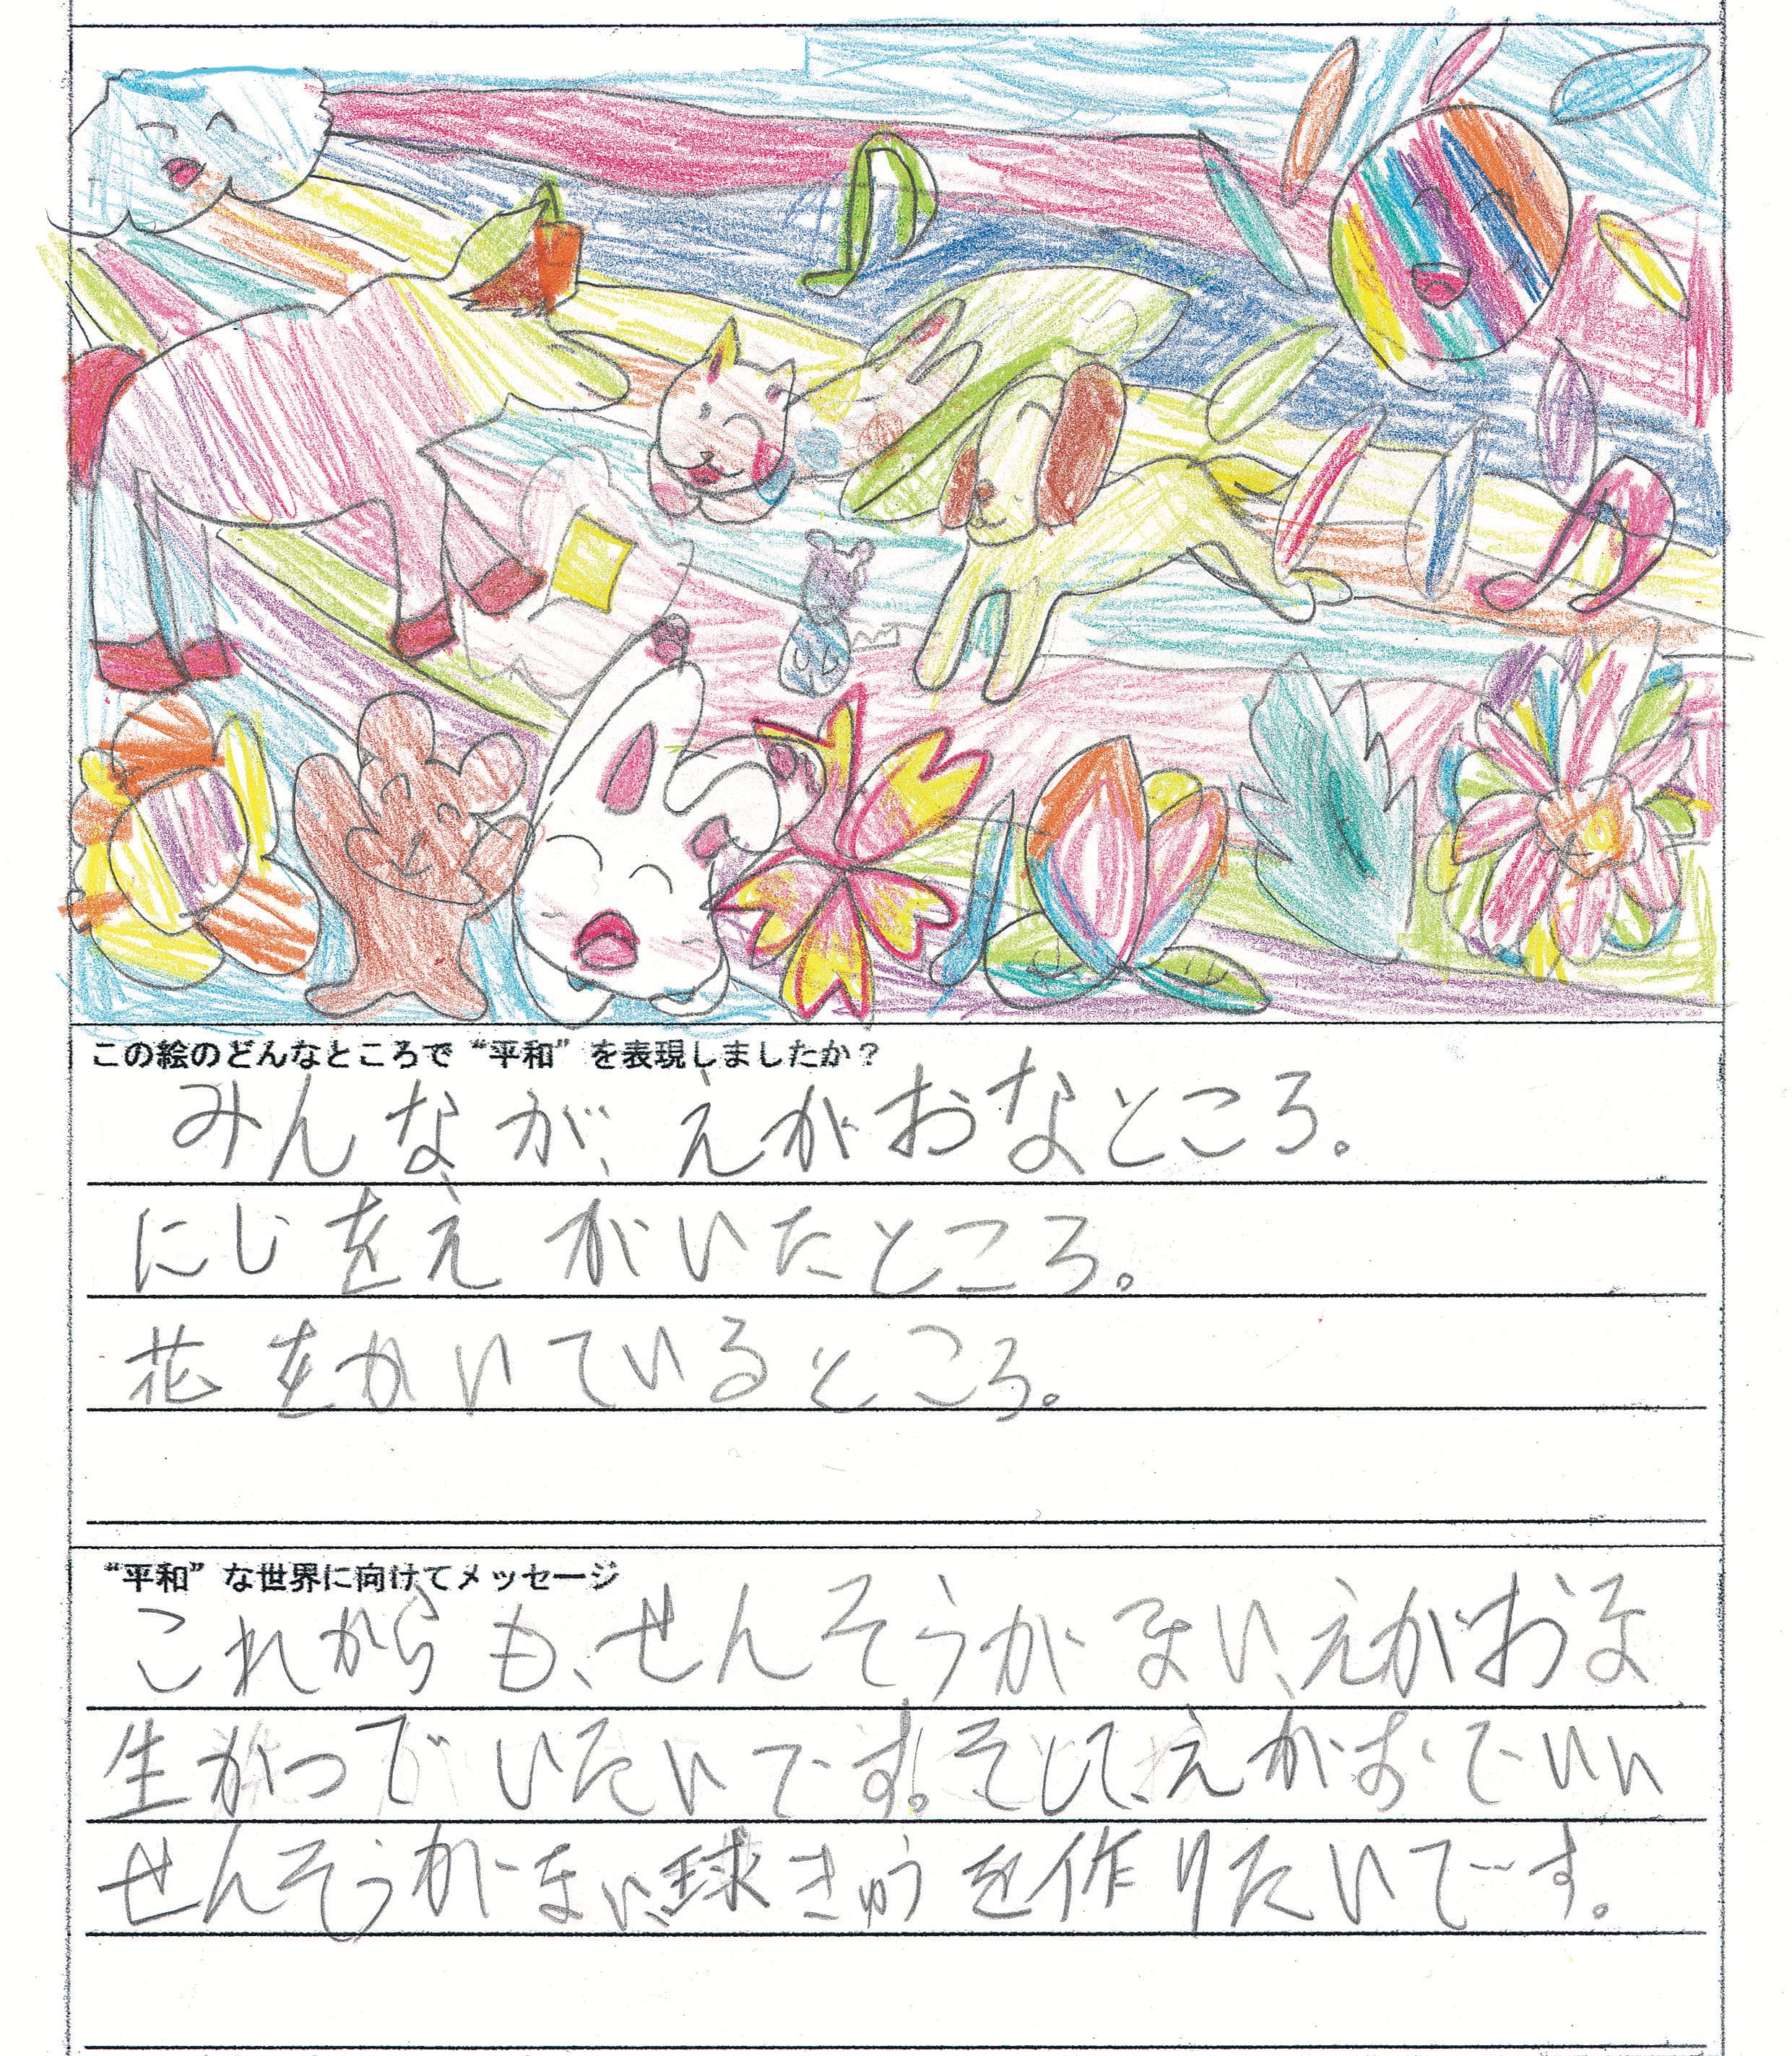 この絵のどんなところで“平和”を表現しましたか？
みんなが、えがおなところ。
にじをえがいたところ。
花をかいているところ。
“平和”な世界に向けてメッセージ
これからも、せんそうがない、えがおな
生がつでいたいです。そして、えがおでいい
せんそうがない、球きゅうを作りたいです。